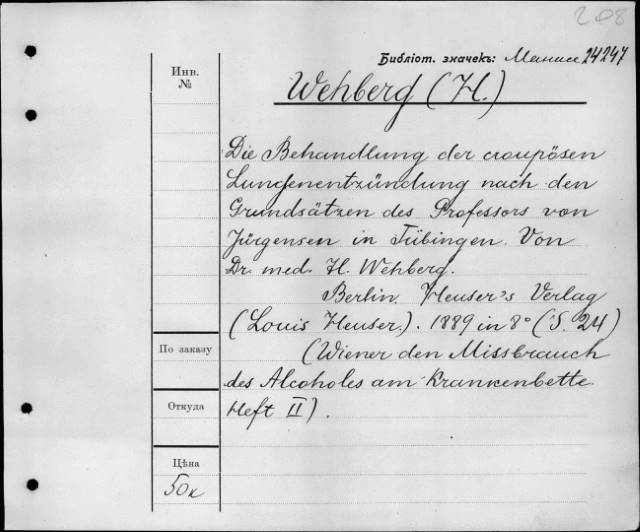 208
Библіот. значекъ: 24247
Инв.
№
Wehberg (H.)
Die Behandlung der croupösen
Lungenentzündung nach den
Grundsätzen des Professors von
Jürgensen in Tübingen. Von
Dr. med. H. Wehberg.
Berlin. Heuser's Verlag
(Louis Heuser.). 1889 in 8° (S. 24)
По заказу
(Wiener den Missbrauch
des Alcoholes am Krankenbette
Откуда
Heft II).
Цѣна
50к